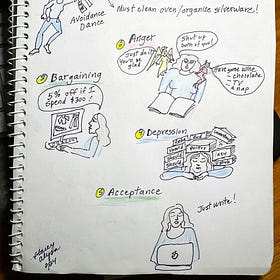 Avoidance
Dance
Must clean oven/organize silverware!
② Anger
Just do it
You'll be
glad
Shut up
both of you!
Have some wine
- chocolate
- TV
- a nap
③ Bargaining
5% off if I
Spend $300!
④ Depression
⑤ Acceptance
Just write!